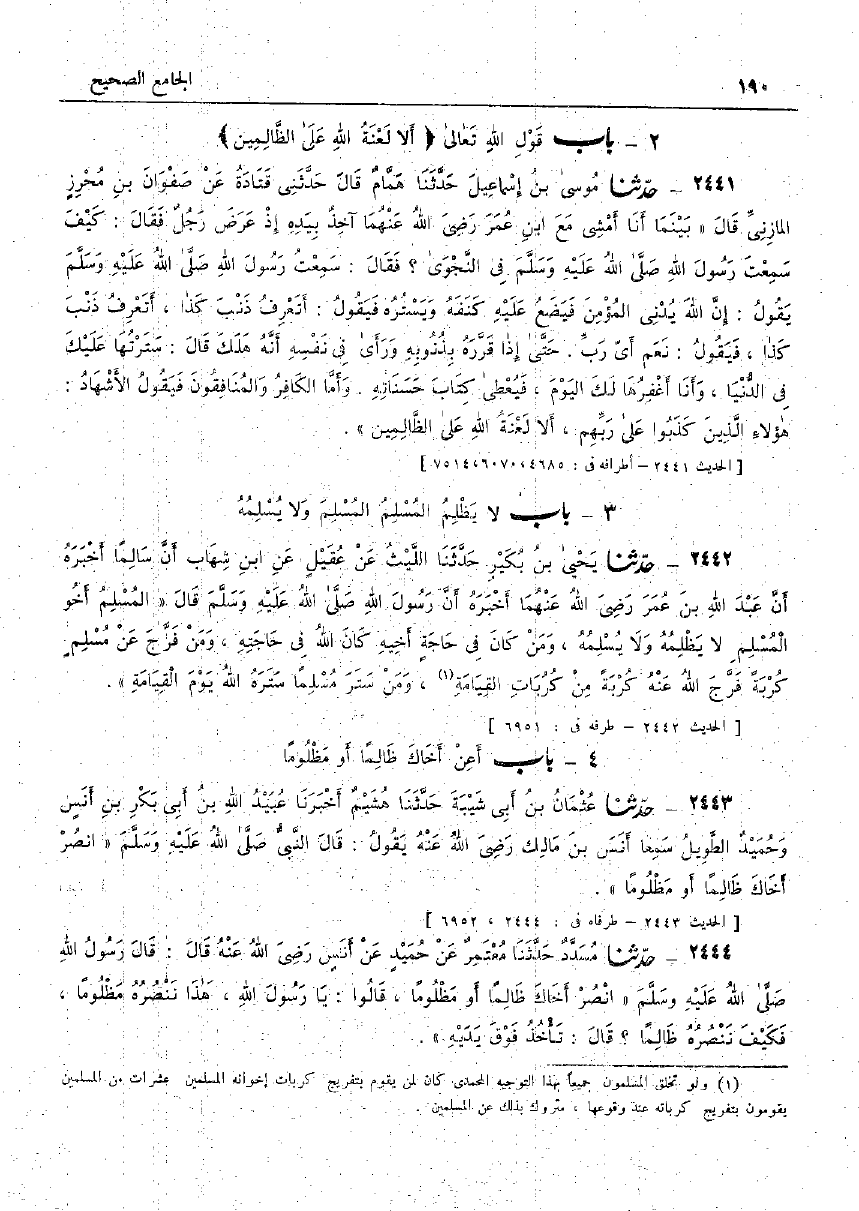 ١٩٠ الجامع الصحيح
٢ - باب قَوْلِ اللهِ تَعَالىٰ ﴿ أَلا لَعْنَةُ اللهِ عَلَى الظَّالِمِين ﴾
٢٤٤١ - حدّثنا مُوسىٰ بنُ إسْمَاعِيلَ حَدَّثَنَا هَمَّامٌ قَالَ حَدَّثَنِى قَتَادَةُ عَنْ صَفْوَانَ بنِ مُحْرِزٍ
المازِنىِّ قَالَ « بَيْنَمَا أَنَا أَمْشِى مَعَ ابنِ عُمَرَ رَضِىَ اللهُ عَنْهُمَا آخِذٌ بِيَدِهِ إذْ عَرَضَ رَجُلٌ فَقَالَ : كَيْفَ
سَمِعْتَ رَسُولَ اللهِ صَلَّى اللهُ عَلَيْهِ وَسَلَّمَ فى النَّجْوَىٰ ؟ فَقَالَ : سَمِعْتُ رَسُولَ اللهِ صَلَّى اللهُ عَلَيْهِ وَسَلَّمَ
يَقُولُ : إنَّ اللهَ يُدْنِى المُؤْمِنَ فَيَضَعُ عَلَيْهِ كَنَفَهُ وَيَسْتُرُه فَيَقُولُ : أتَعْرِفُ ذَنْبَ كَذَا ، أَتَعْرِفُ ذَنْبَ
كَذَا ، فَيَقُولُ : نَعَم أَىْ رَبِّ . حَتَّىٰ إذَا قَرَّرَهُ بِذُنُوبِهِ وَرَأىٰ فِى نَفْسِهِ أنَّهُ هَلَكَ قَالَ : سَتَرْتُهَا عَلَيْكَ
فِى الدُّنْيَا ، وَأَنَا أَغْفِرُهَا لَكَ اليَوْمَ ، فَيُعْطىٰ كِتَابَ حَسَنَاتِهِ . وَأَمَّا الكَافِرُ وَالمُنَافِقُونَ فَيَقُولُ الأَشْهَادُ :
هٰؤلاءِ الَّذِينَ كَذَبُوا عَلىٰ رَبِّهِم ، أَلا لَعْنَةُ اللهِ عَلىٰ الظَّالِمِين » .
[ الحديث ٢٤٤١ - أطرافه فى : ٤٦٨٥، ٦٠٧٠، ٧٥١٤ ]
٣ - باب لا يَظْلِمُ المُسْلِمُ المُسْلِمَ وَلا يُسْلِمُهُ
٢٤٤٢ - حدّثنا يَحْيىٰ بنُ بُكَيْرٍ حَدَّثَنَا اللَّيْثُ عَنْ عُقَيْلٍ عَنِ ابنِ شِهَابٍ أَنَّ سَالِمًا أَخْبَرَهُ
أَنَّ عَبْدَ اللهِ بنَ عُمَرَ رَضِىَ اللهُ عَنْهُمَا أَخْبَرَهُ أَنَّ رَسُولَ اللهِ صَلَّى اللهُ عَلَيْهِ وَسَلَّمَ قَالَ « المُسْلِمُ أَخُو
الْمُسْلِمِ لا يَظْلِمُهُ وَلَا يُسْلِمُهُ ، وَمَنْ كَانَ فِى حَاجَةِ أَخِيهِ كَانَ اللهُ فِى حَاجَتِهِ ، وَمَنْ فَرَّجَ عَنْ مُسْلِمٍ
كُرْبَةً فَرَّجَ اللهُ عَنْهُ كُرْبَةً مِنْ كُرُبَاتِ القِيَامَةِ(١) ، وَمَنْ سَتَرَ مُسْلِمًا سَتَرَهُ اللهُ يَوْمَ الْقِيَامَةِ » .
[ الحديث ٢٤٤٢ - طرفه فى : ٦٩٥١ ]
٤ - باب أَعِنْ أَخَاكَ ظَالِمًا أَو مَظْلُومًا
٢٤٤٣ - حدّثنا عُثْمَانُ بنُ أَبى شَيْبَةَ حَدَّثَنَا هُشَيْمٌ أَخْبَرَنَا عُبَيْدُ اللهِ بنُ أَبِى بَكْرِ بنِ أَنَسٍ
وَحُمَيْدٌ الطَّوِيلُ سَمِعَا أَنَسَ بنَ مَالِك رَضِىَ اللهُ عَنْهُ يَقُولُ : قَالَ النَّبىُّ صَلَّى اللهُ عَلَيْهِ وَسَلَّمَ « انصُرْ
أَخَاكَ ظَالِمًا أَو مَظْلُومًا » .
[ الحديث ٢٤٤٣ - طرفاه فى : ٢٤٤٤ ، ٦٩٥٢ ]
٢٤٤٤ - حدّثنا مُسَدَّدٌ حَدَّثَنَا مُعْتَمِرٌ عَنْ حُمَيْدٍ عَنْ أَنَسٍ رَضِىَ اللهُ عَنْهُ قَالَ : قَالَ رَسُولُ اللهِ
صَلَّىٰ اللهُ عَلَيْهِ وسَلَّمَ « انْصُرْ أَخَاكَ ظَالِمًا أَو مَظْلُومًا ، قَالُوا : يَا رَسُولَ اللهِ ، هٰذَا نَنْصُرُهُ مَظْلُومًا ،
فَكَيْفَ نَنْصُرُهُ ظَالِمًا ؟ قَالَ : تَأْخُذُ فَوْقَ يَدَيْهِ » .
(١) ولو تخلق المسلمون جميعاً بهذا التوجيه المحمدى كان لمن يقوم بتفريج كربات إخوانه المسلمين عشرات من المسلمين
يقومون بتفريج كرباته عند وقوعها ، متروك بذلك عن المسلمين .